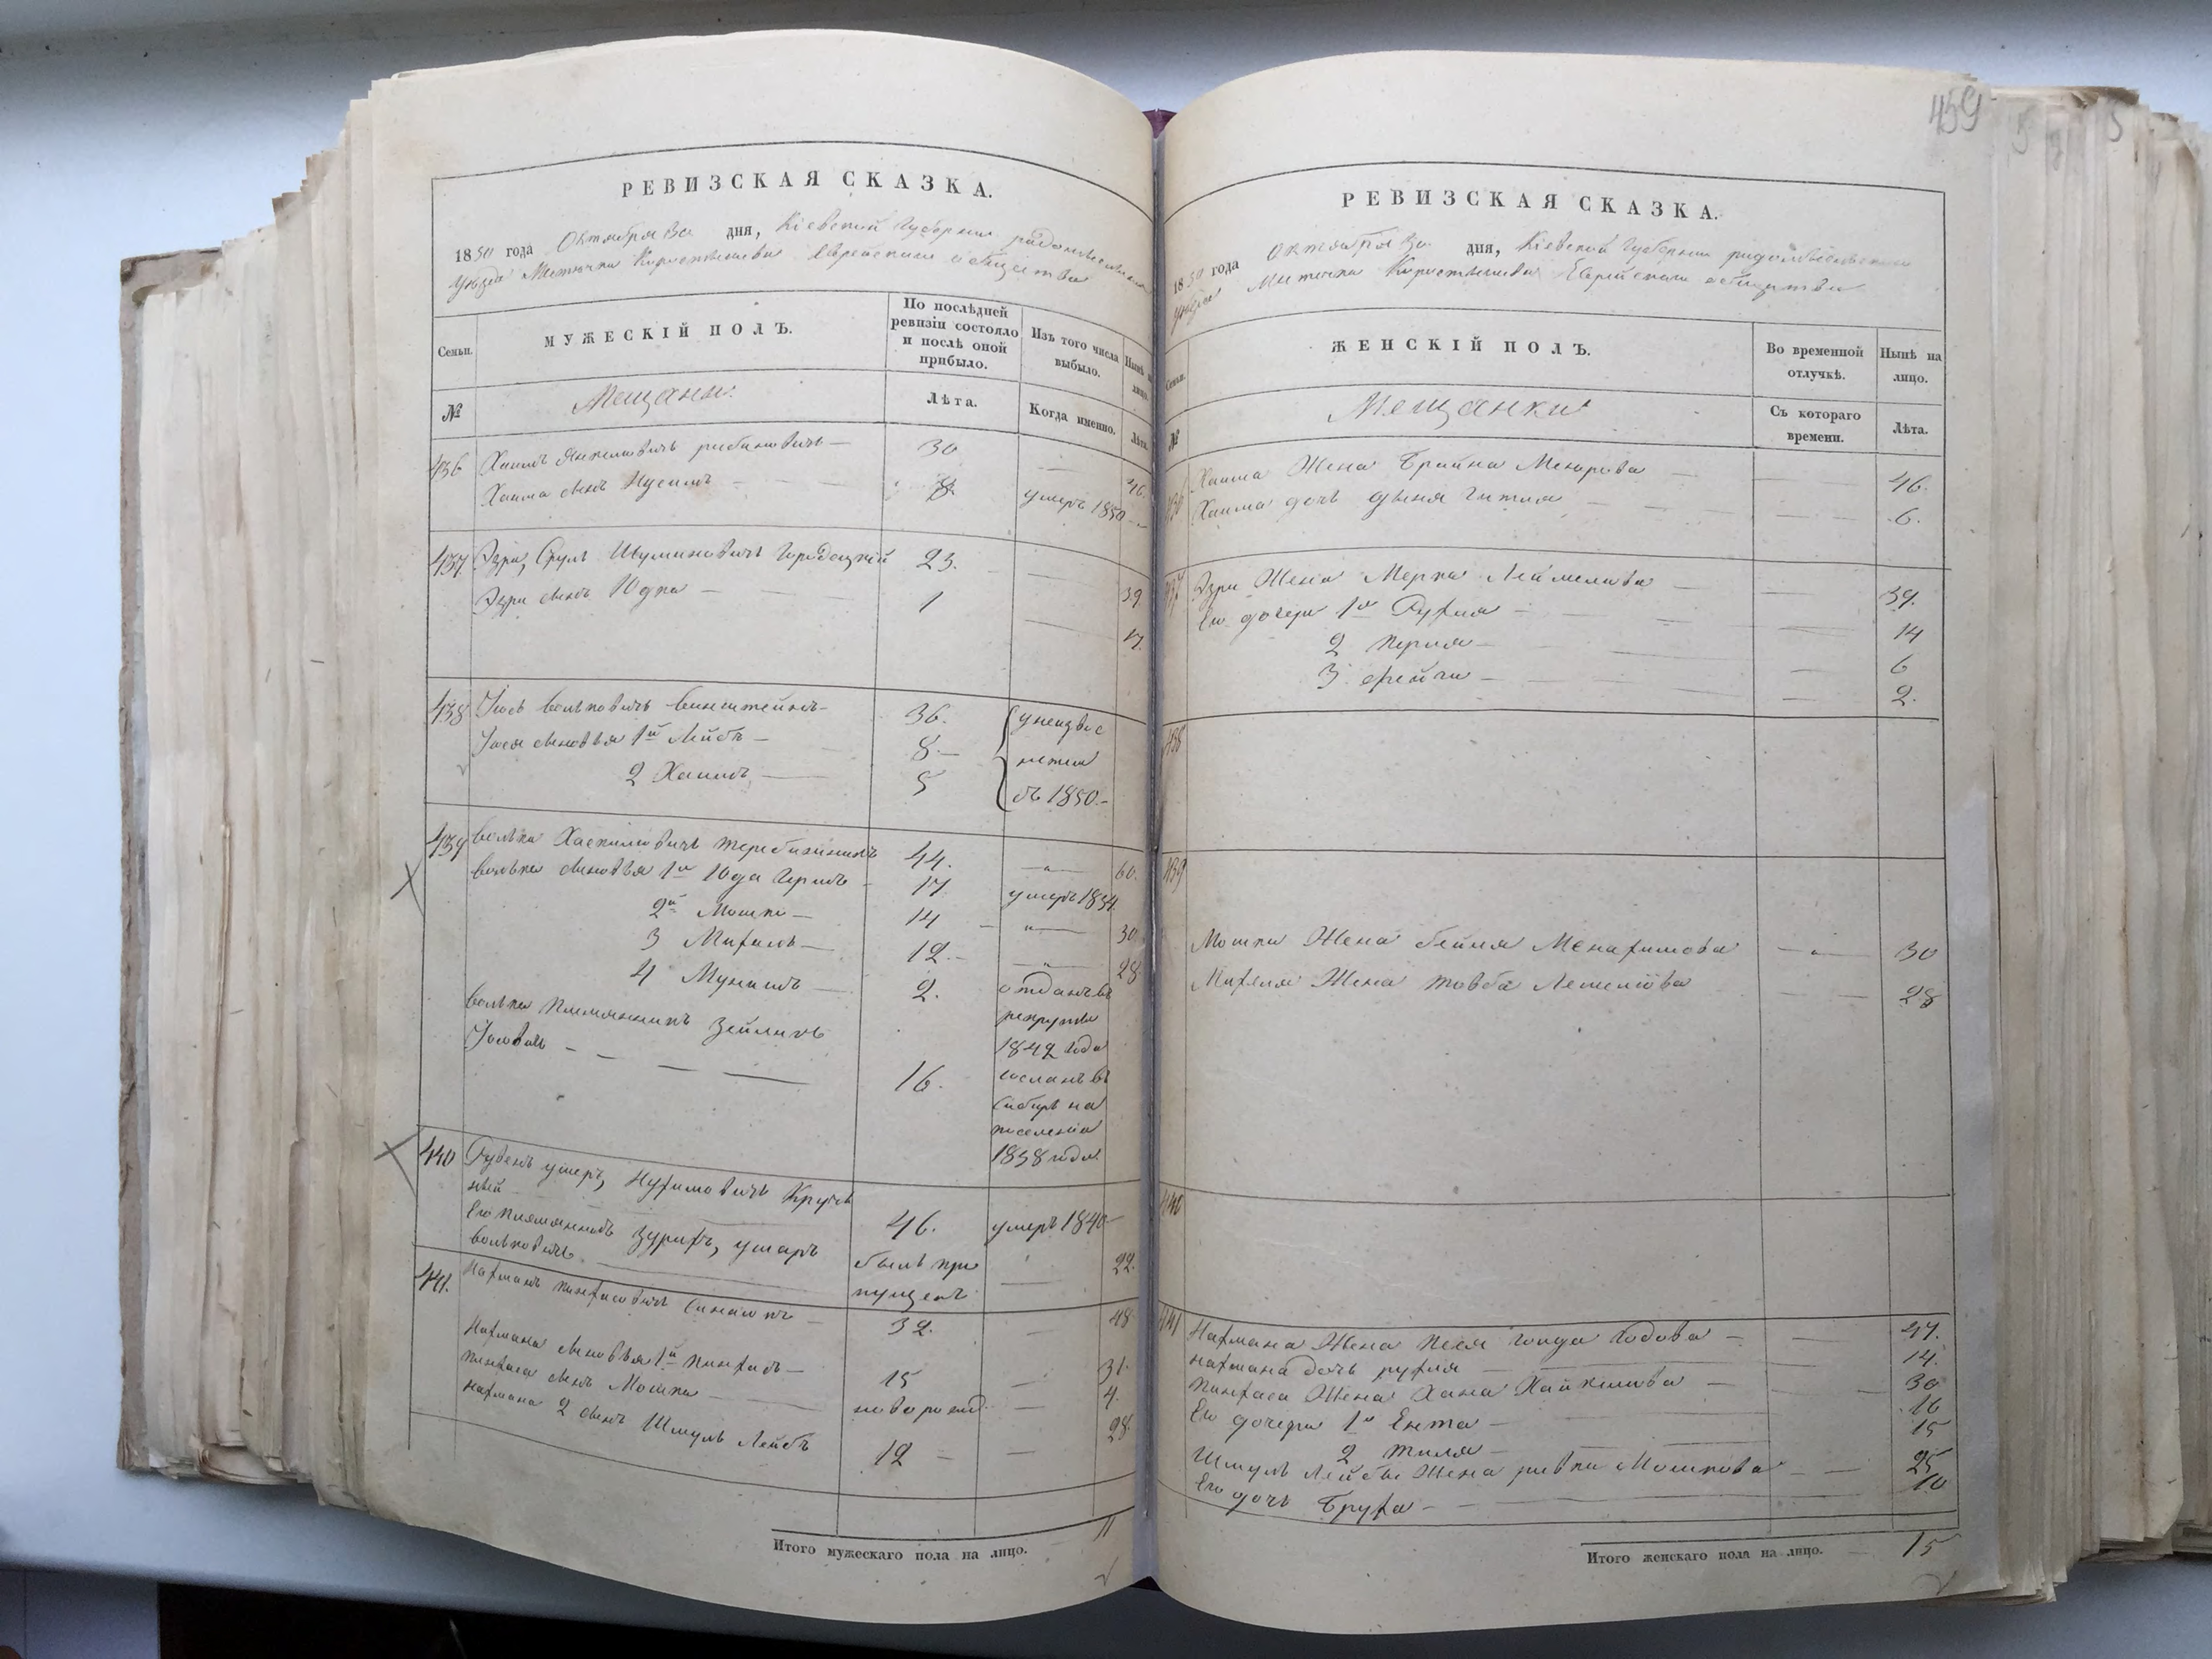 РЕВИЗСКАЯ СКАЗКА.
1850 года Октября 30 дня, Кіевской Губерніи радомысльскаго
уѣзда Мѣстечка Коростышева Еврейскаго общества
Семьи.
МУЖЕСКІЙ ПОЛЪ.
По послѣдней ревизіи состояло и послѣ оной прибыло.
Изъ того числа выбыло.
Нынѣ на лицо.
№
Мещане.
Лѣта.
Когда именно.
Лѣта.
436 Хаимъ Янкелевичъ рабиновичъ — 30 — 46.
Хаима сынъ Нусимъ — умеръ 1850 —
437 Эзри, Сруль Шулимовичъ Городецкій 23. — 39
Эзри сынъ Юдка — 1 — 17.
438 Іось вольковичъ винштейнъ — 36. унеизвес
Іося сыновья 1й Лейбъ — 8 — ности
2 Хаимъ — 5 съ 1850. —
439 волька Хаскилевичъ 44. — 60.
волька сыновья 1й Юда Гершъ — 17 умеръ 1834.
2й Мошко — 14 — 30
3 Михель — 12. — 28
4 Мунишъ — 2. отданъ въ
рекруты
1842 года
волька племянникъ Зейликъ
Іосевъ — 16. сосланъ въ
Сибирь на
поселеніе
1838 года.
440 Рувенъ умеръ, Нухимовичъ
46. умеръ 1840 —
Его племянникъ умеръ
вольковичъ былъ про
пущенъ — 22.
441. Нахманъ пинхасовичъ — 32. — 48
Нахмана сыновья 1й Пинхасъ — 15 — 31.
пинхаса сынъ Мошко — новорожд. — 4.
нахмана 2 сынъ Шмуль Лейбъ 12 — 28.
Итого мужескаго пола на лицо. 11
459
РЕВИЗСКАЯ СКАЗКА.
1850 года октября 30 дня, Кіевской Губерніи радомысльскаго
уѣзда Местечка Коростышева Еврейскаго общества
Семьи.
ЖЕНСКІЙ ПОЛЪ.
Во временной отлучкѣ.
Нынѣ на лицо.
№
Мещанки
Съ котораго времени.
Лѣта.
436 Хаима Жена Брайна — 46.
Хаима дочь Дыня Гитля — 6.
437 Эзри Жена Мерка — 39.
Его дочери 1я Рухля — 14
2 Перля — 6
3 Фейга — 2.
438
439
Мошка Жена бейня Менахимова — 30
Михеля Жена товба — 28
440
441 Нахмана Жена песя — 47.
нахмана дочь рухля — 14.
пинхаса Жена Хана — 30
Его дочери 1я Ента — 16
2 — 15
Шмуль Лейбы Жена ривка Мошкова — 25
Его дочь Бруха — 10
Итого женскаго пола на лицо. 15